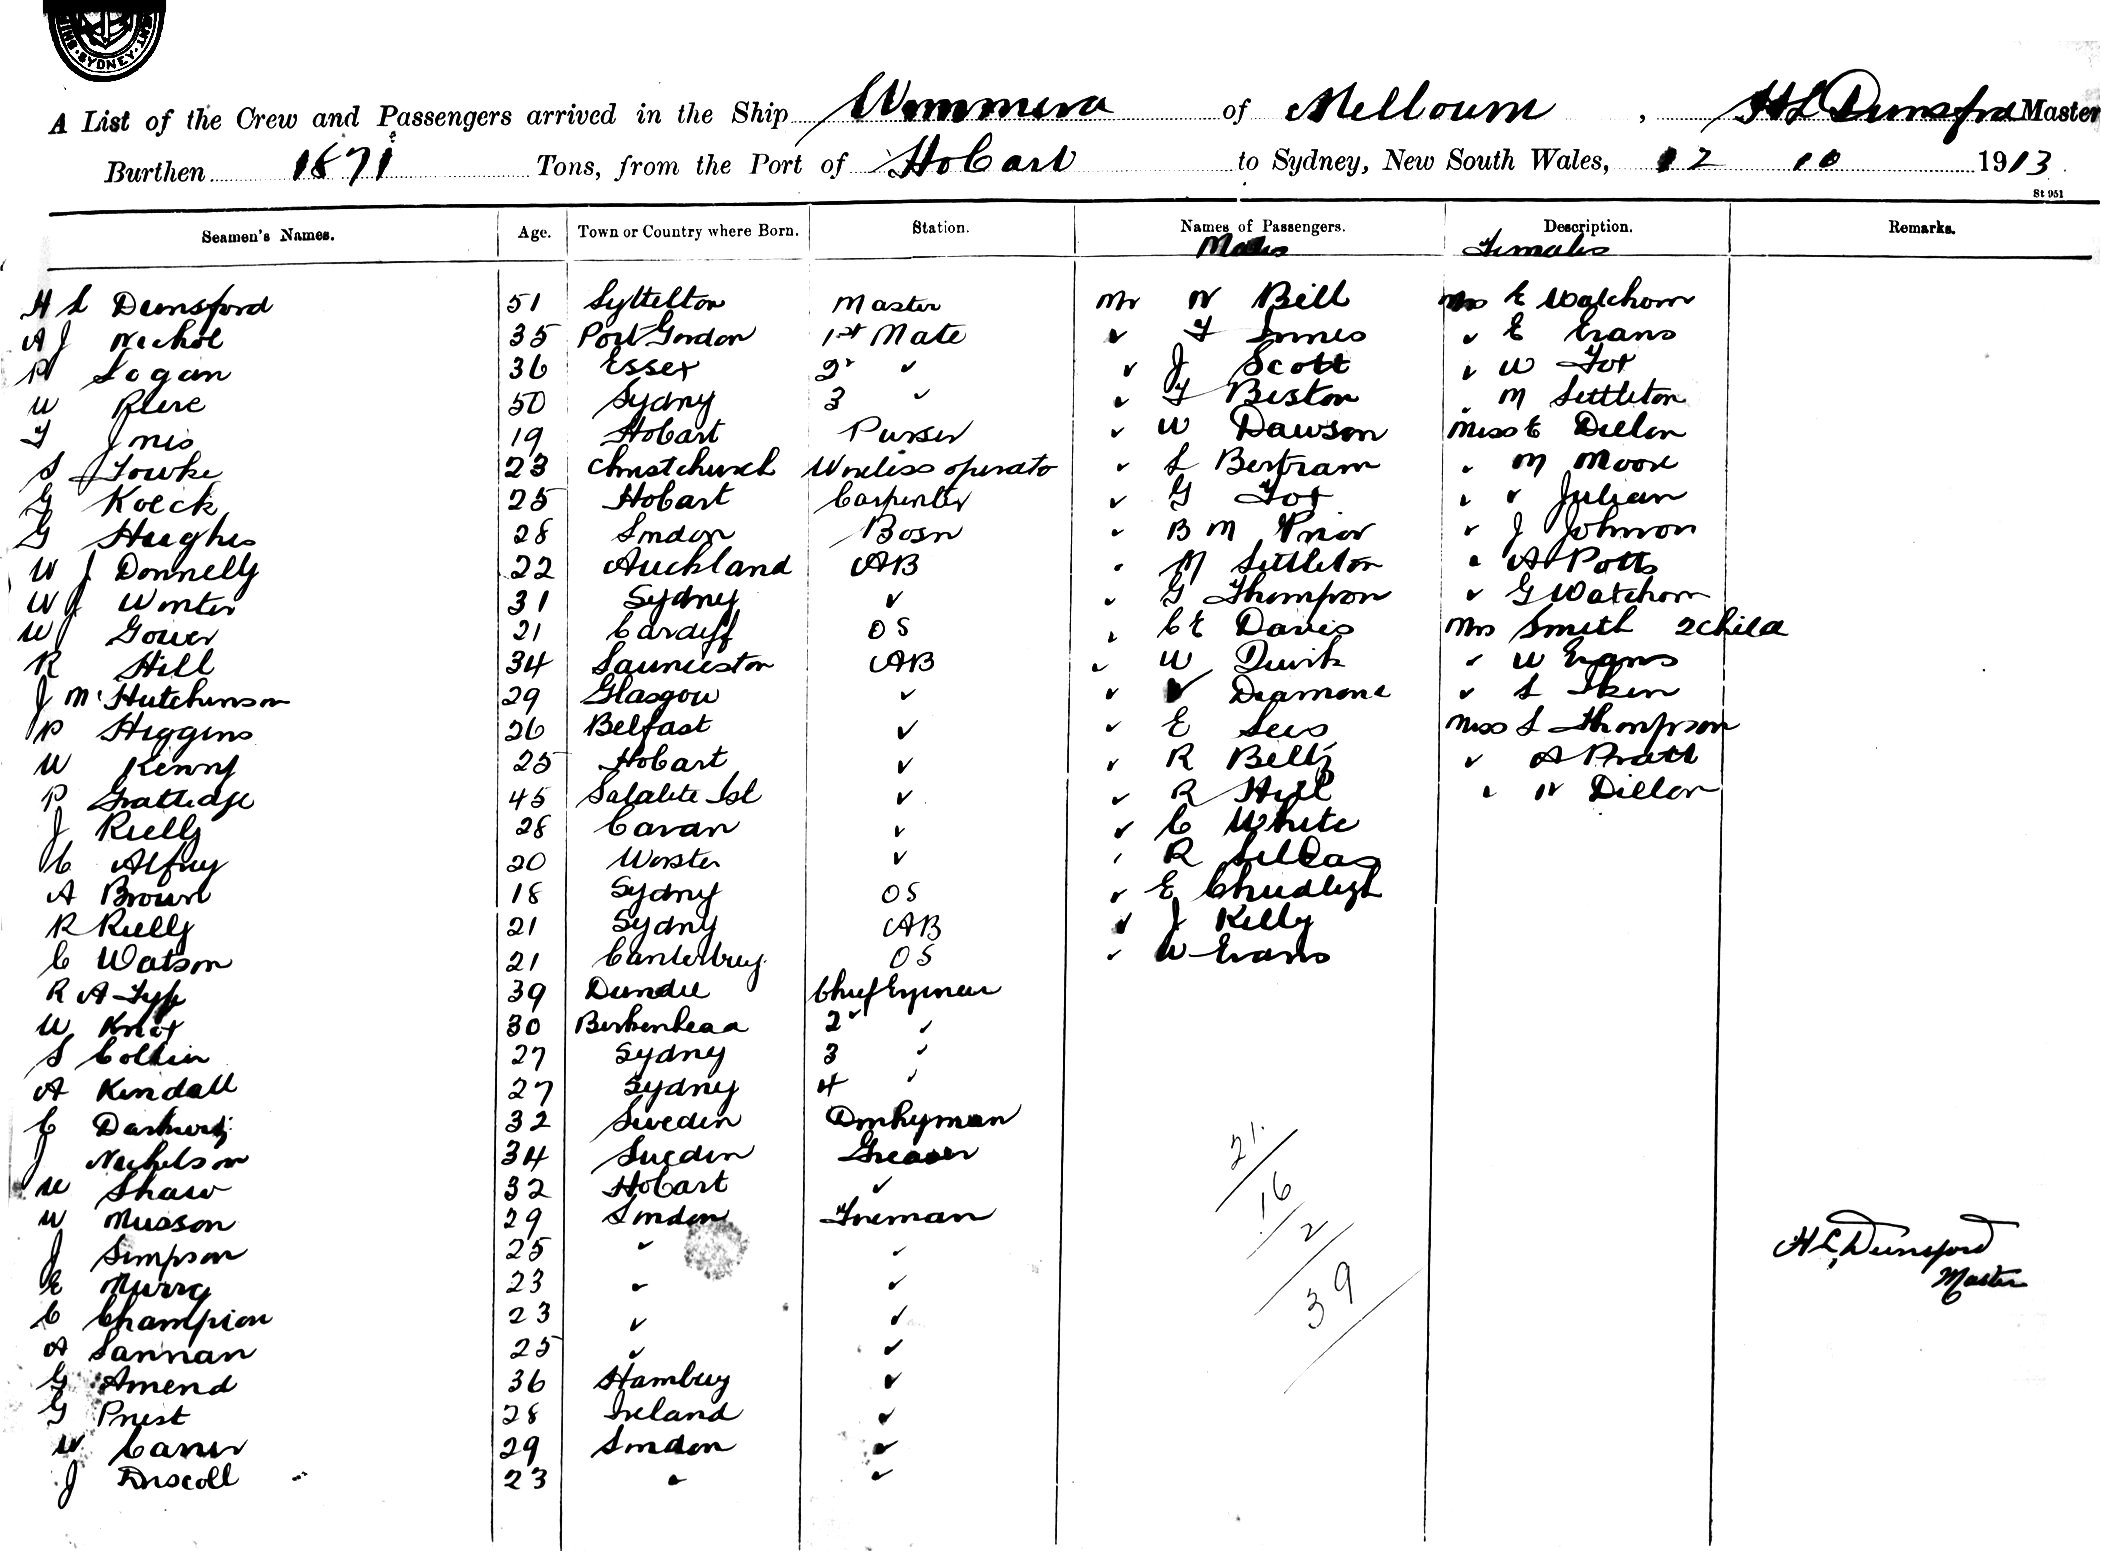 SYDNEY
A List of the Crew and Passengers arrived in the Ship Wimmera of Melbourne, H L Dunsford Master
Burthen 1871 Tons, from the Port of Hobart to Sydney, New South Wales, 12 10 1913
St 951
Seamen's Names. Age. Town or Country where Born. Station. Names of Passengers. Description. Remarks.
Males Females
H L Dunsford 51 Lyttelton Master Mr W Bill Mrs E Watchorn
A J Nichol 35 Port Gordon 1st Mate " F Innes " E Evans
P Logan 36 Essex 2" " " J Scott " W Fox
W 50 Sydny 3 " " F Beston " M Settleton
F 19 Hobart Purser " W Dawson Miss E Dillon
S Fowke 23 Christchurch Wireliss operato " L Bertram " M Moore
G Koeck 25 Hobart Carpenter " G Fox " " Julian
G Hughes 28 London Bosn " B M Prior " J Johnson
W J Donnelly 22 Auckland AB " M Settleton " A Potts
W J Winter 31 Sydny " " G Thompson " G Watchorn
W J Gower 21 Cardiff OS " C E Davis Mrs Smith 2 child
R Hill 34 Launceston AB " W " W Evans
J Mc Hutchinson 29 Glasgow " " Diamond " L
P Higgins 26 Belfast " " E Lees Miss L Thompson
W Kenny 25 Hobart " " R Belly " A Pratt
P Grattidge 45 Isl " " R Hill " N Dillon
J Rielly 28 Cavan " " C White
C Alfrey 20 Worster " " R
A Brown 18 Sydny OS " E Chudligh
R Rielly 21 Sydny AB " J Kelly
C Watson 21 Canterbury OS " W Evans
R A Fyfe 39 Dundee Chief Engineer
W Knox 30 Berkenhead 2" "
S Collin 27 Sydny 3 "
A Kendall 27 Sydny 4 "
C 32 Sweden Donkyman
J Nichelson 34 Sweden Greaser
W Shaw 32 Hobart "
W Musson 29 London Fireman
J Simpson 25 " "
E Murry 23 " "
C Champion 23 " "
A Lannan 25 " "
G Amend 36 Hamburg "
G Priest 28 Ireland "
W Carier 29 London "
J Driscoll 23 " "
21
16
2
39
H L Dunsford
Master